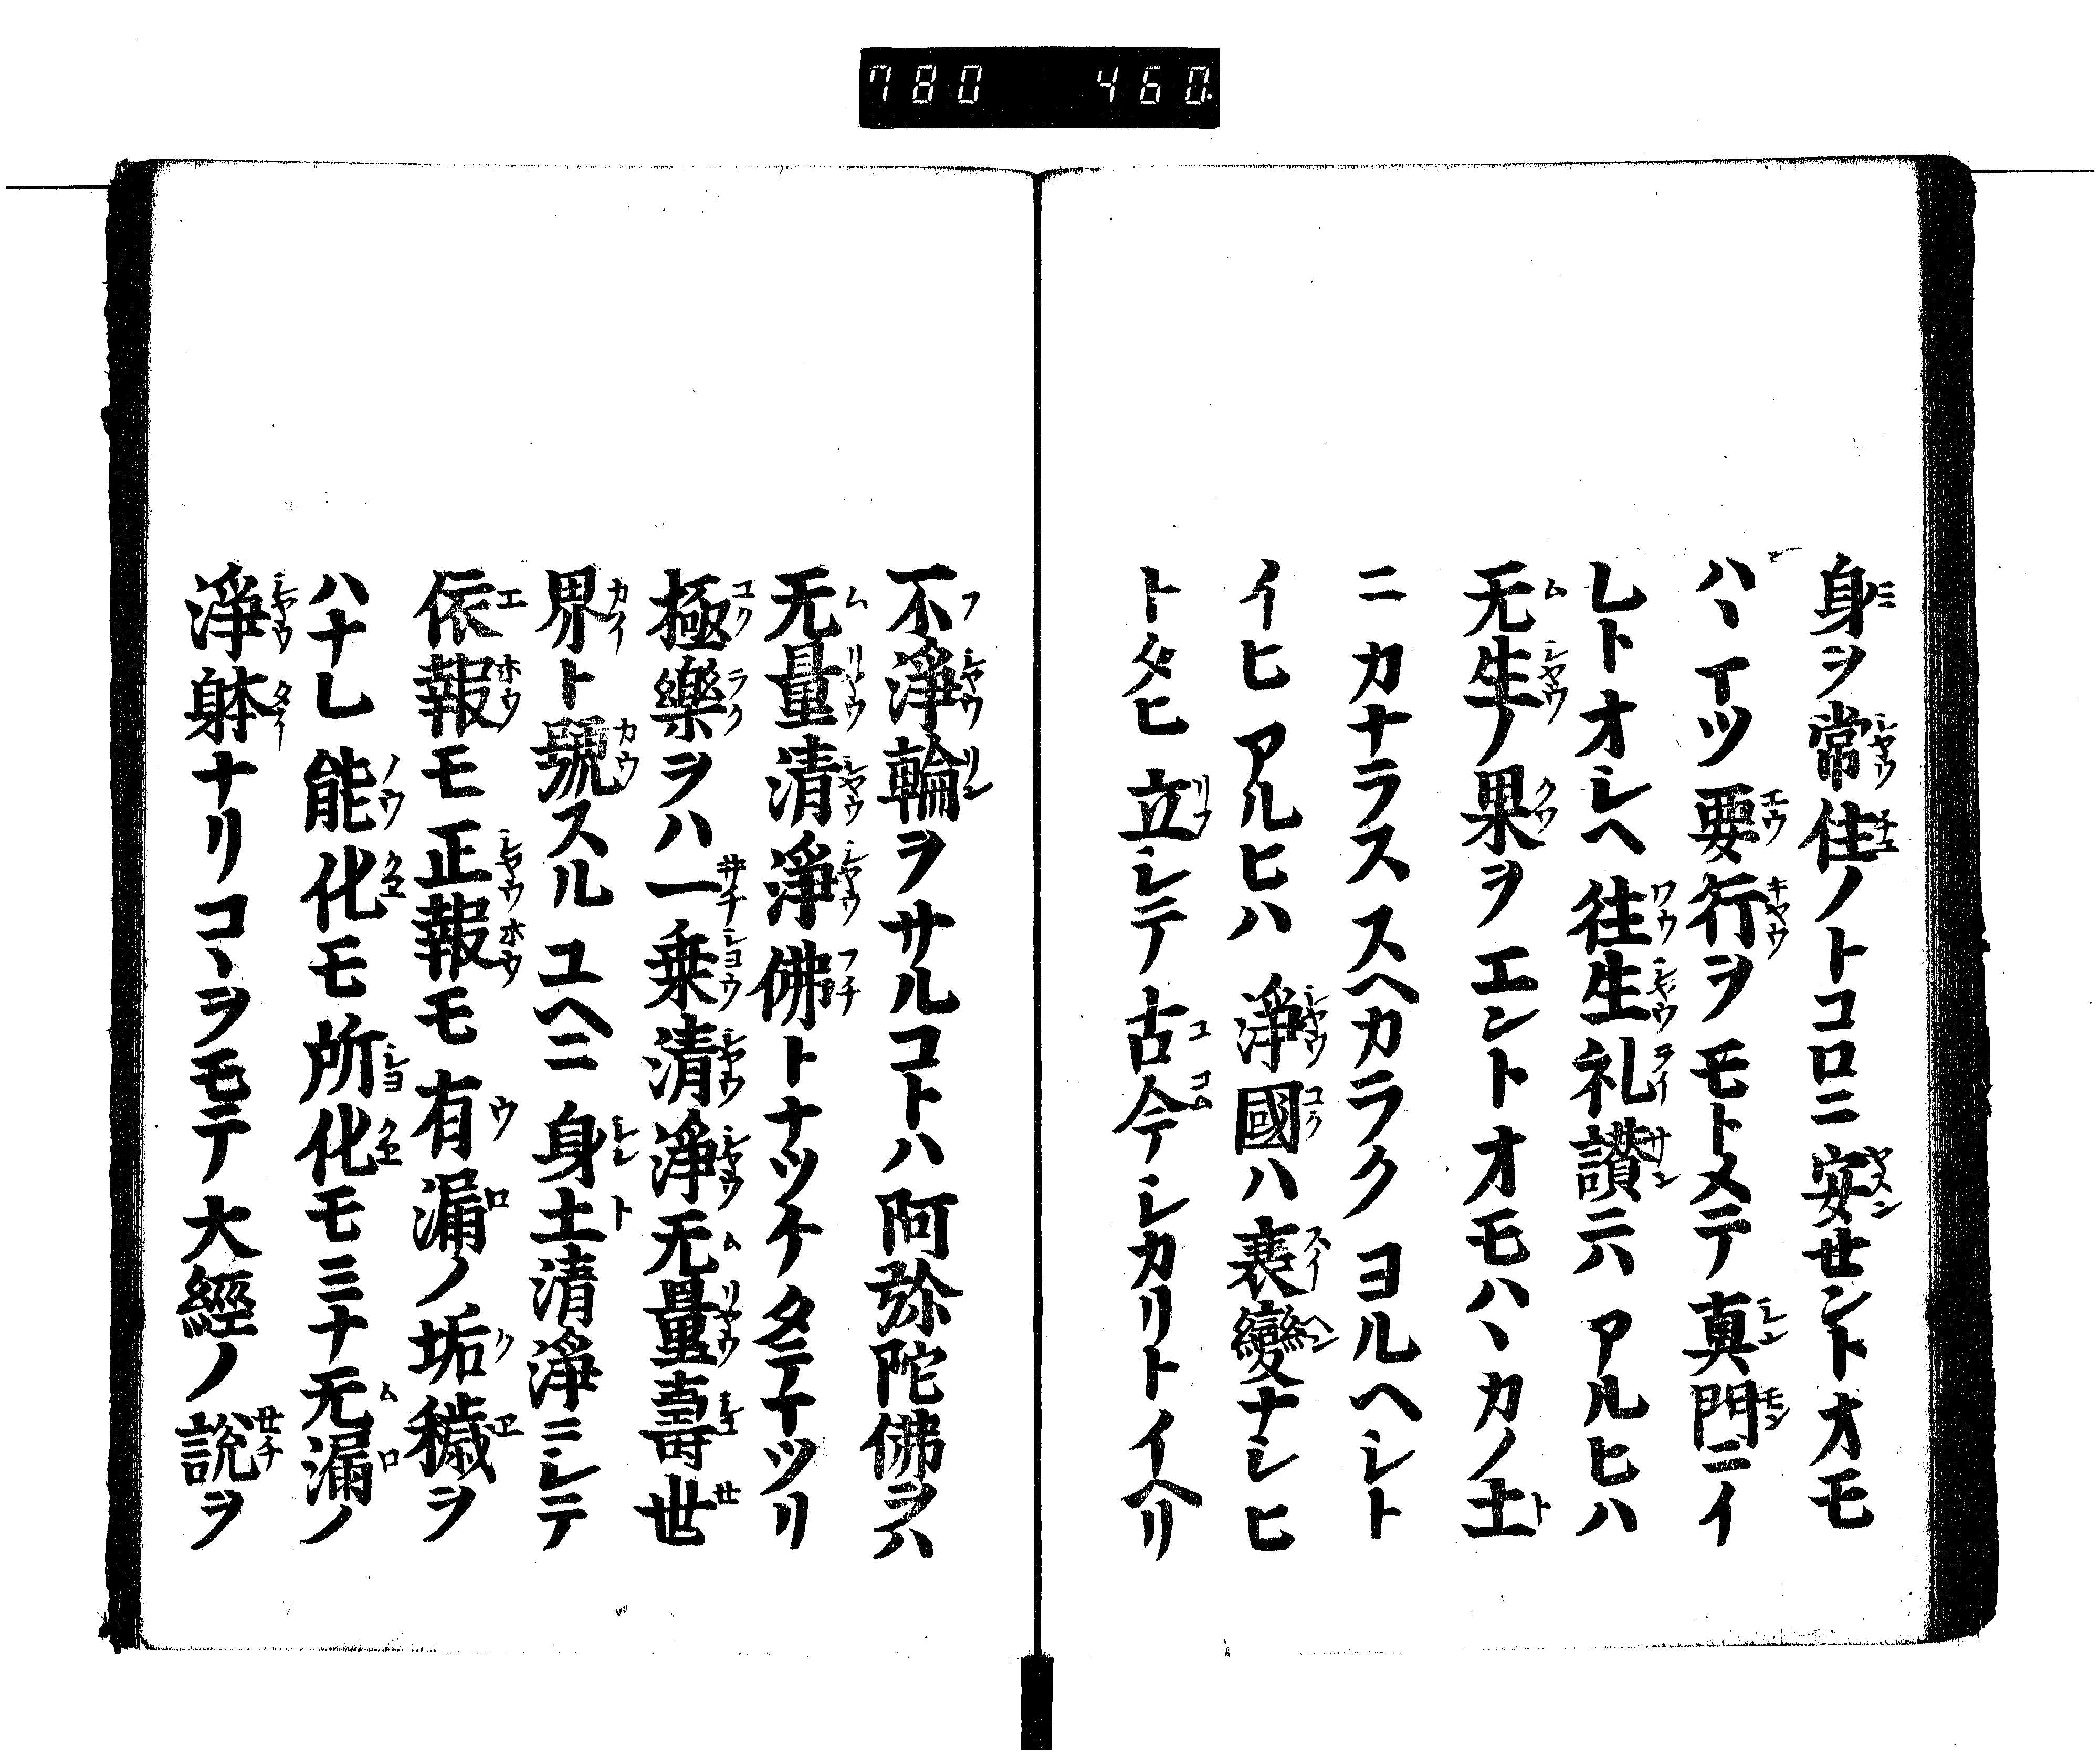 780 460.
身ヲ常住ノトコロニ安セントオモ
ハヽイツ要行ヲモトメテ真門ニイ
レトオシヘ往生礼讃ニハアルヒハ
无生ノ果ヲエントオモハヽカノ土
ニカナラススヘカラクヨルヘシト
イヒアルヒハ淨國ハ衰變ナシヒ
トタヒ立シテ古今シカリトイヘリ
不淨輪ヲサルコトハ阿弥陀佛ヲハ
无量清淨佛トナツケタテマツリ
極樂ヲハ一乗清淨无量壽世
界ト號スルユヘニ身土清淨ニシテ
依報モ正報モ有漏ノ垢穢ヲ
ハナレ能化モ所化モミナ无漏ノ
淨躰ナリコヽヲモテ大經ノ説ヲ